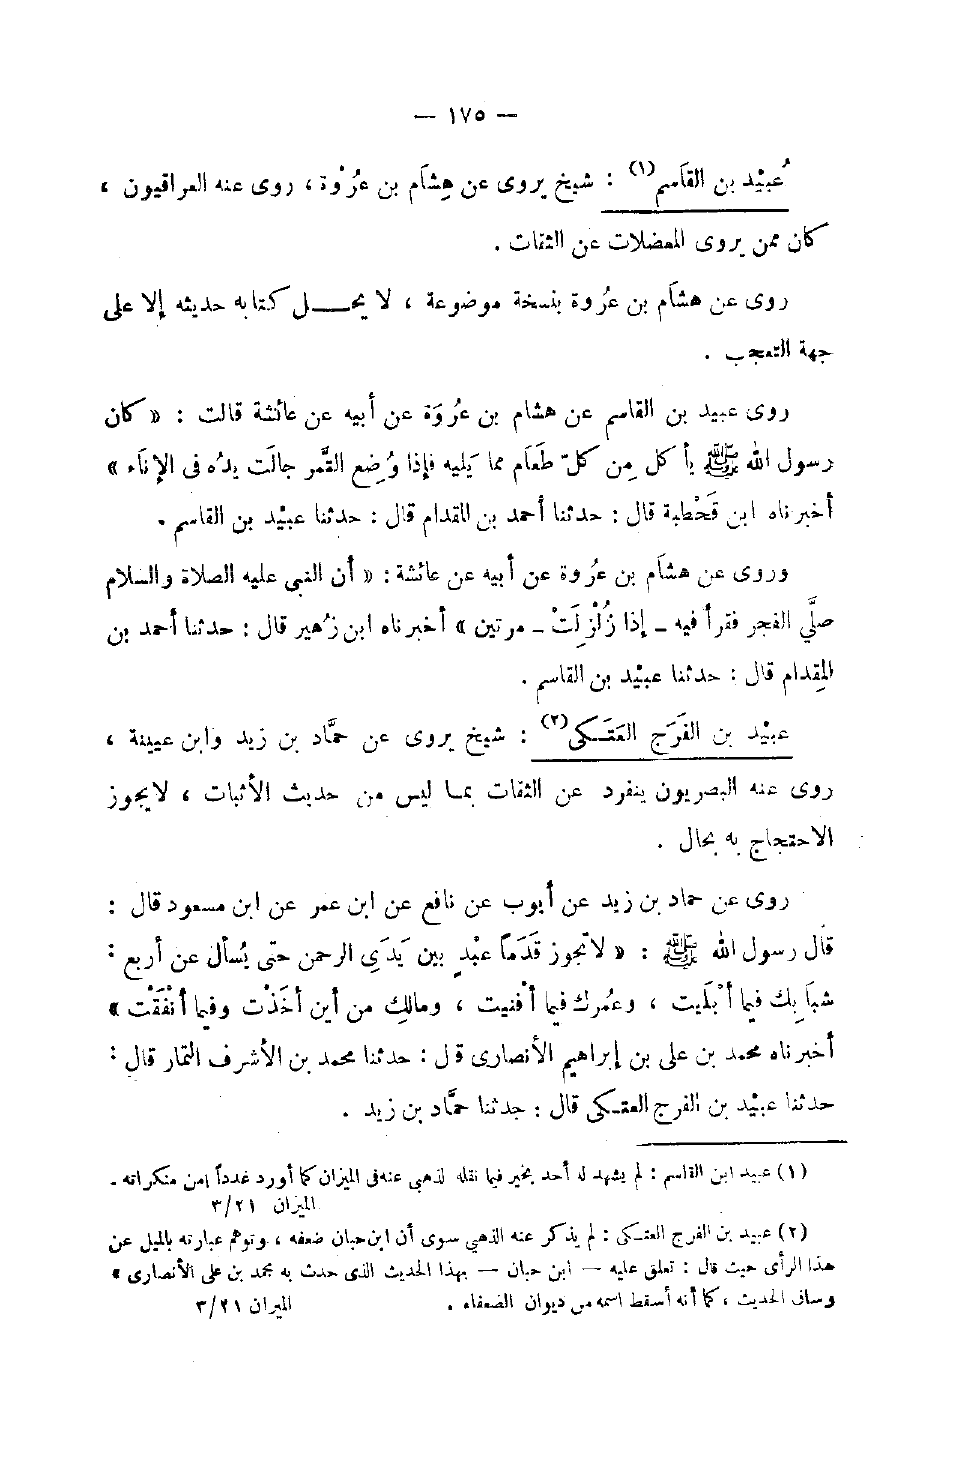 — ١٧٥ —
عُبَيْد بن القاسم (١) : شيخ يروى عن هِشَام بن عُرْوة ، روى عنه العراقيون ،
كان ممن يروى المعضلات عن الثقات .
روى عن هشَام بن عُروة بنسخة موضوعة ، لا يحـــل كتابه حديثه إلا على
جهة التعجب .
روى عبيد بن القاسم عن هشام بن عُروَة عن أبيه عن عائشة قالت : « كان
رسول الله ﷺ يأكل مِن كلّ طعَام مما يَليه فإذا وُضِع التَّمر جالَت يدُه فى الإنَاء »
أخبرناه ابن قَحْطبة قال : حدثنا أحمد بن المقدام قال : حدثنا عبيْد بن القاسم .
وروى عن هشَام بن عُروة عن أبيه عن عائشة : « أن النبى عليه الصلاة والسلام
صلَّي الفجر فقرأ فيه ـ إذا زُلْزِلَتْ ـ مرتين » أخبرناه ابن زُهير قال : حدثنا أحمد بن
المِقدام قال : حدثنا عبيْد بن القاسم .
عبيْد بن الفَرَج العَتَـكى (٢) : شيخ يروى عن حمَّاد بن زيد وابن عيينة ،
روى عنه البصريون ينفرد عن الثقات بمـا ليس من حديث الأثبات ، لايجوز
الاحتجاج به بحال .
روى عن حماد بن زيد عن أيوب عن نافع عن ابن عمر عن ابن مسعود قال :
قال رسول الله ﷺ : « لاتجوز قَدَمَا عبْدٍ بين يَدَىِ الرحمن حتى يُسأل عن أربع :
شبَابِك فيما أبْلَيت ، وعمُرك فيما أفْنيت ، ومالكِ من أين أخَذْت وفيما أنْفَقْت »
أخبرناه محمد بن على بن إبراهيم الأنصارى قال : حدثنا محمد بن الأشرف التمار قال :
حدثنا عبيْد بن الفرج العتـكى قال : حدثنا حمَّاد بن زيد .
(١) عبيد ابن القاسم : لم يشهد له أحد بخير فيما نقله لذهبى عنه فى الميزان كما أورد عدداً من منكراته .
الميزان ٣/٢١
(٢) عبيد بن الفرج العتكى : لم يذكر عنه الذهبي سوى أن ابن حبان ضعفه ، وتوهم عبارته بالميل عن
هذا الرأى حيث قال : تعلق عليه — ابن حبان — بهذا الحديث الذى حدث به محمد بن على الأنصارى »
وساق الحديث ، كما أنه أسقط اسمه من ديوان الضعفاء . الميزان ٣/٢١